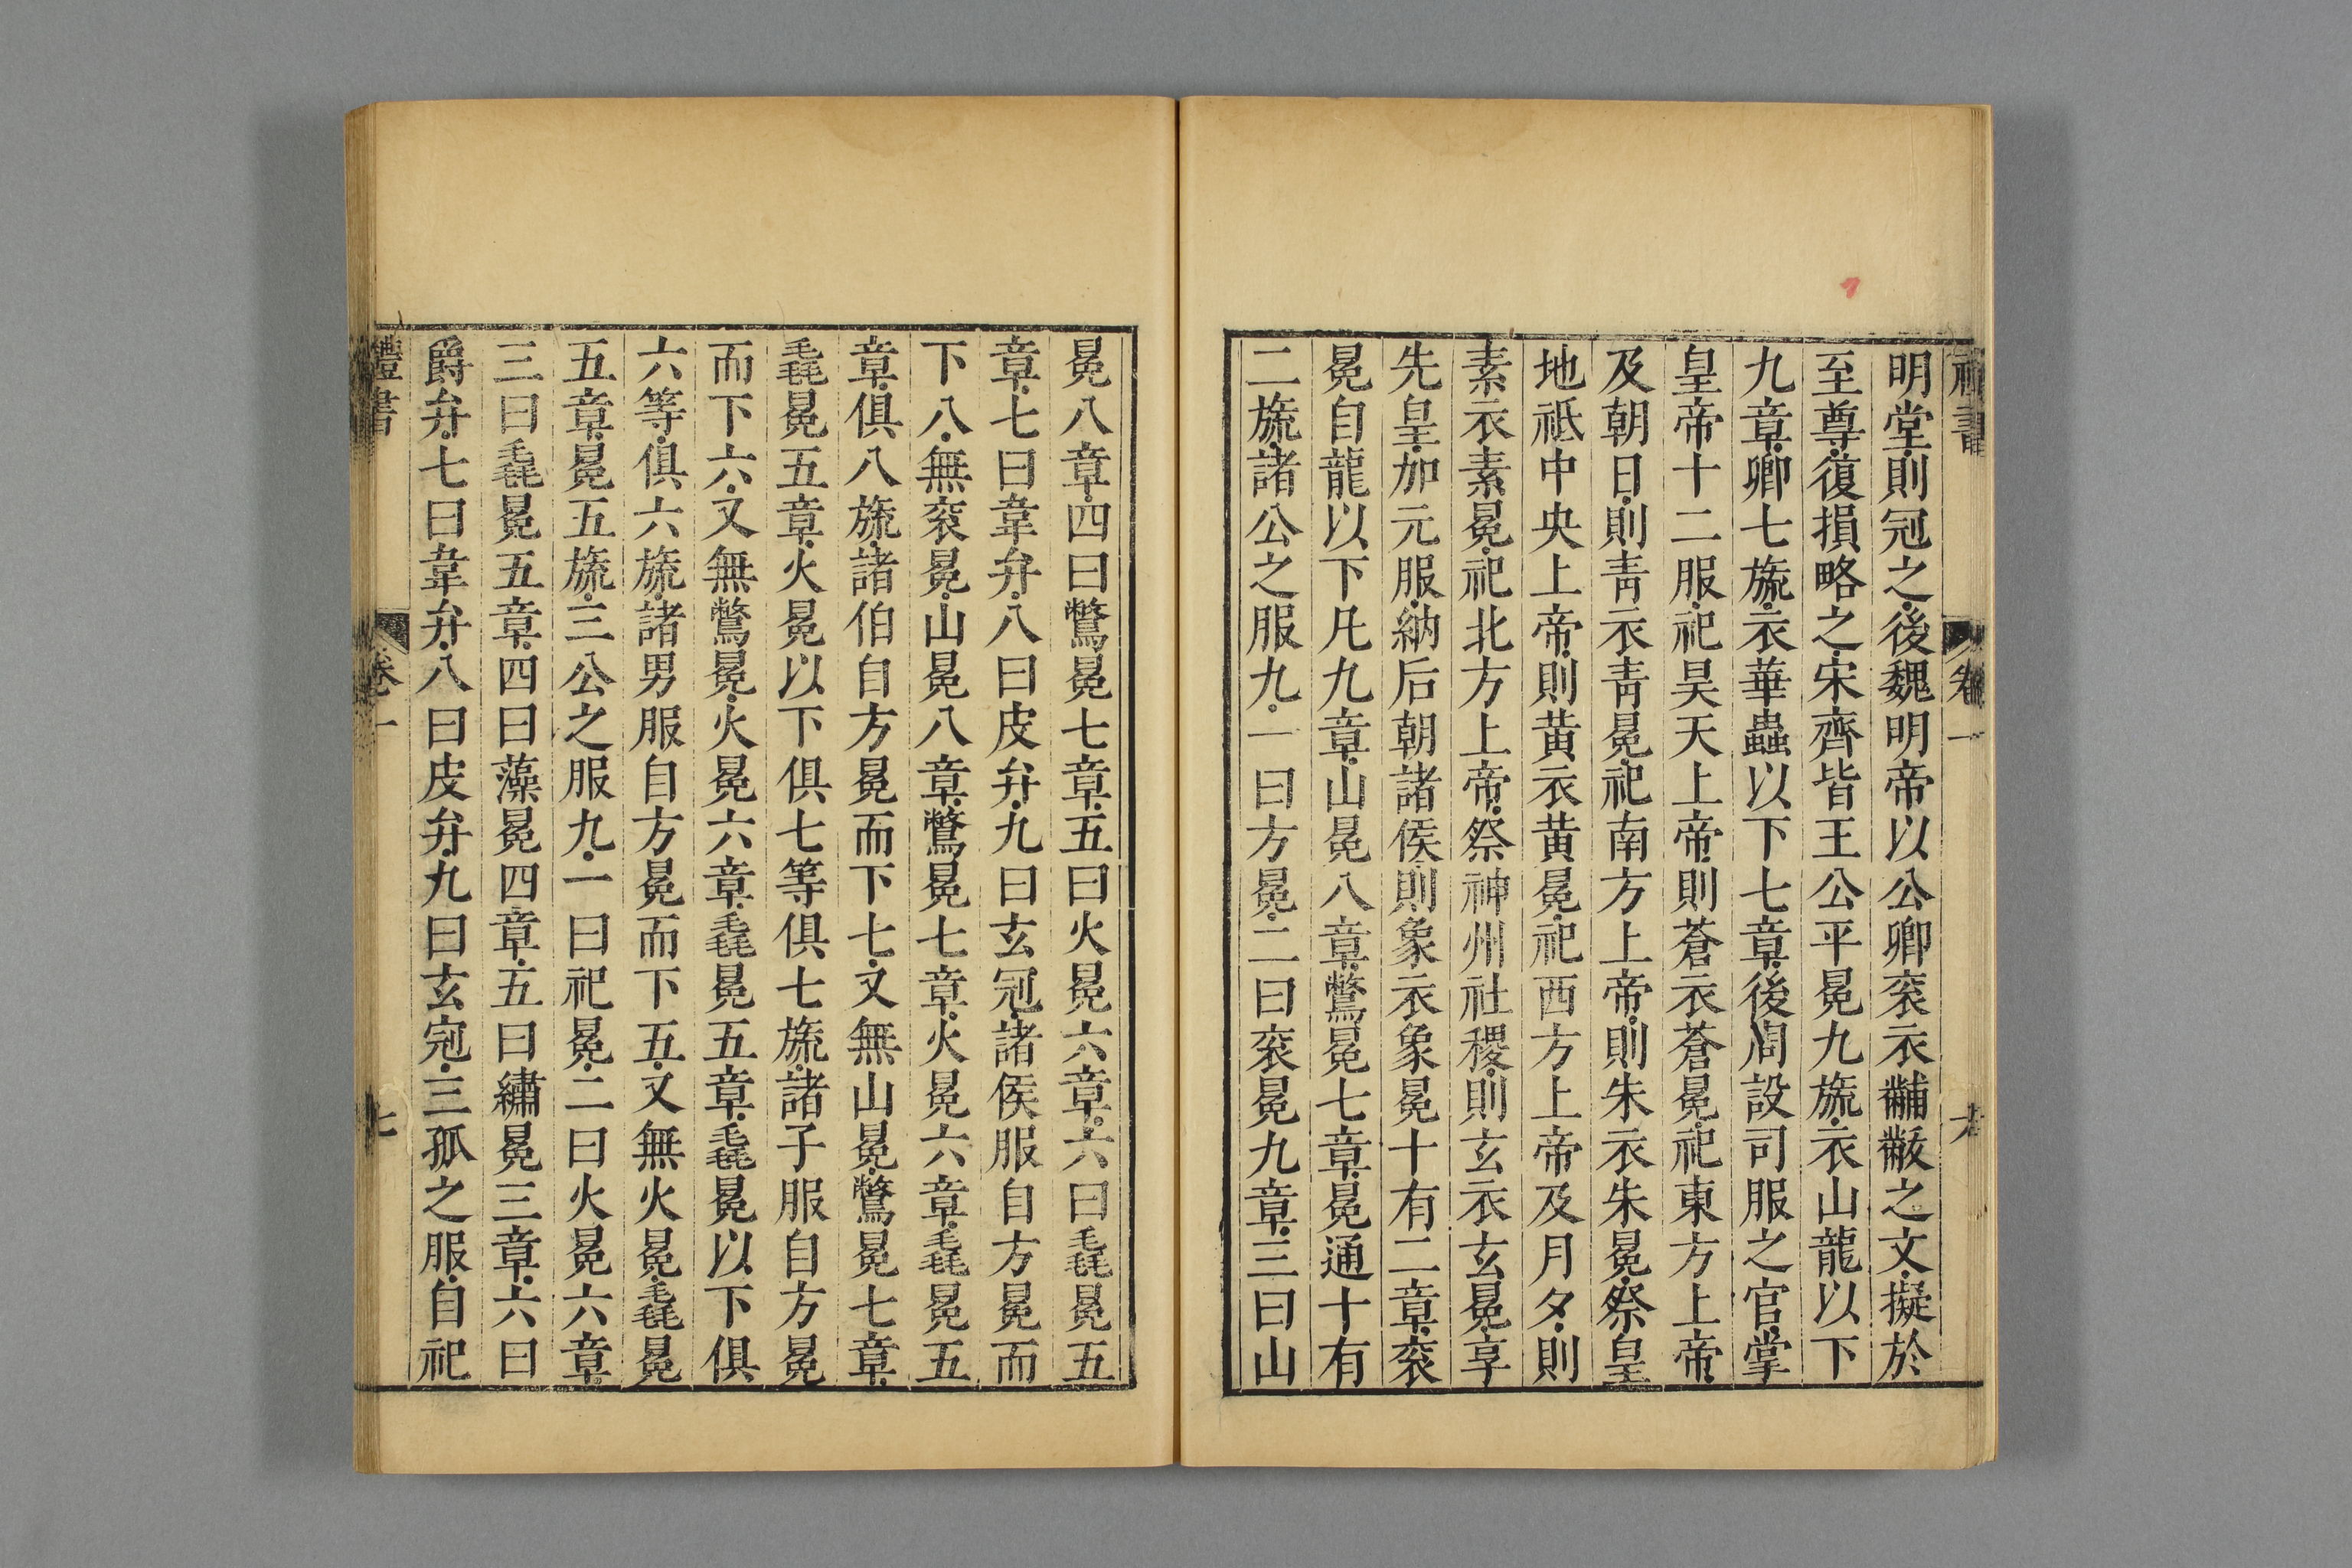 禮書 卷一 六
明堂則冠之後魏明帝以公卿衮衣黼黻之文擬於
至尊復損略之宋齊皆王公平冕九旒衣山龍以下
九章卿七旒衣華蟲以下七章後周設司服之官掌
皇帝十二服祀昊天上帝則蒼衣蒼冕祀東方上帝
及朝日則青衣青冕祀南方上帝則朱衣朱冕祭皇
地祗中央上帝則黃衣黃冕祀西方上帝及月夕則
素衣素冕祀北方上帝祭神州社稷則玄衣玄冕享
先皇加元服納后朝諸侯則象衣象冕十有二章衮
冕自龍以下凡九章山冕八章鷩冕七章冕通十有
二旒諸公之服九一曰方冕二曰衮冕九章三曰山
冕八章四曰鷩冕七章五曰火冕六章六曰毳冕五
章七曰韋弁八曰皮弁九曰玄冠諸侯服自方冕而
下八無衮冕山冕八章鷩冕七章火冕六章毳冕五
章俱八旒諸伯自方冕而下七又無山冕鷩冕七章
毳冕五章火冕以下俱七等俱七旒諸子服自方冕
而下六又無鷩冕火冕六章毳冕五章毳冕以下俱
六等俱六旒諸男服自方冕而下五又無火冕毳冕
五章冕五旒三公之服九一曰祀冕二曰火冕六章
三曰毳冕五章四曰藻冕四章五曰繡冕三章六曰
爵弁七曰韋弁八曰皮弁九曰玄冠三孤之服自祀
禮書 卷一 七